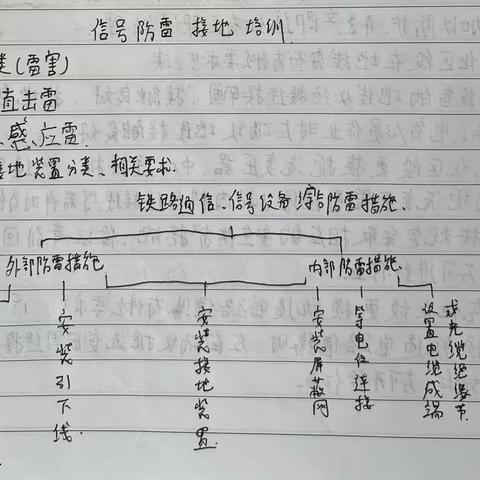 信号防雷 接地 培训.
类(雷害)
直击雷
感应雷.
接地装置分类、相关要求.
铁路通信、信号设备综合防雷措施.
外部防雷措施
内部防雷措施.
安装引下线.
安装接地装置.
安装屏蔽网
等电位连接
设置电缆成端
或光缆绝缘节.